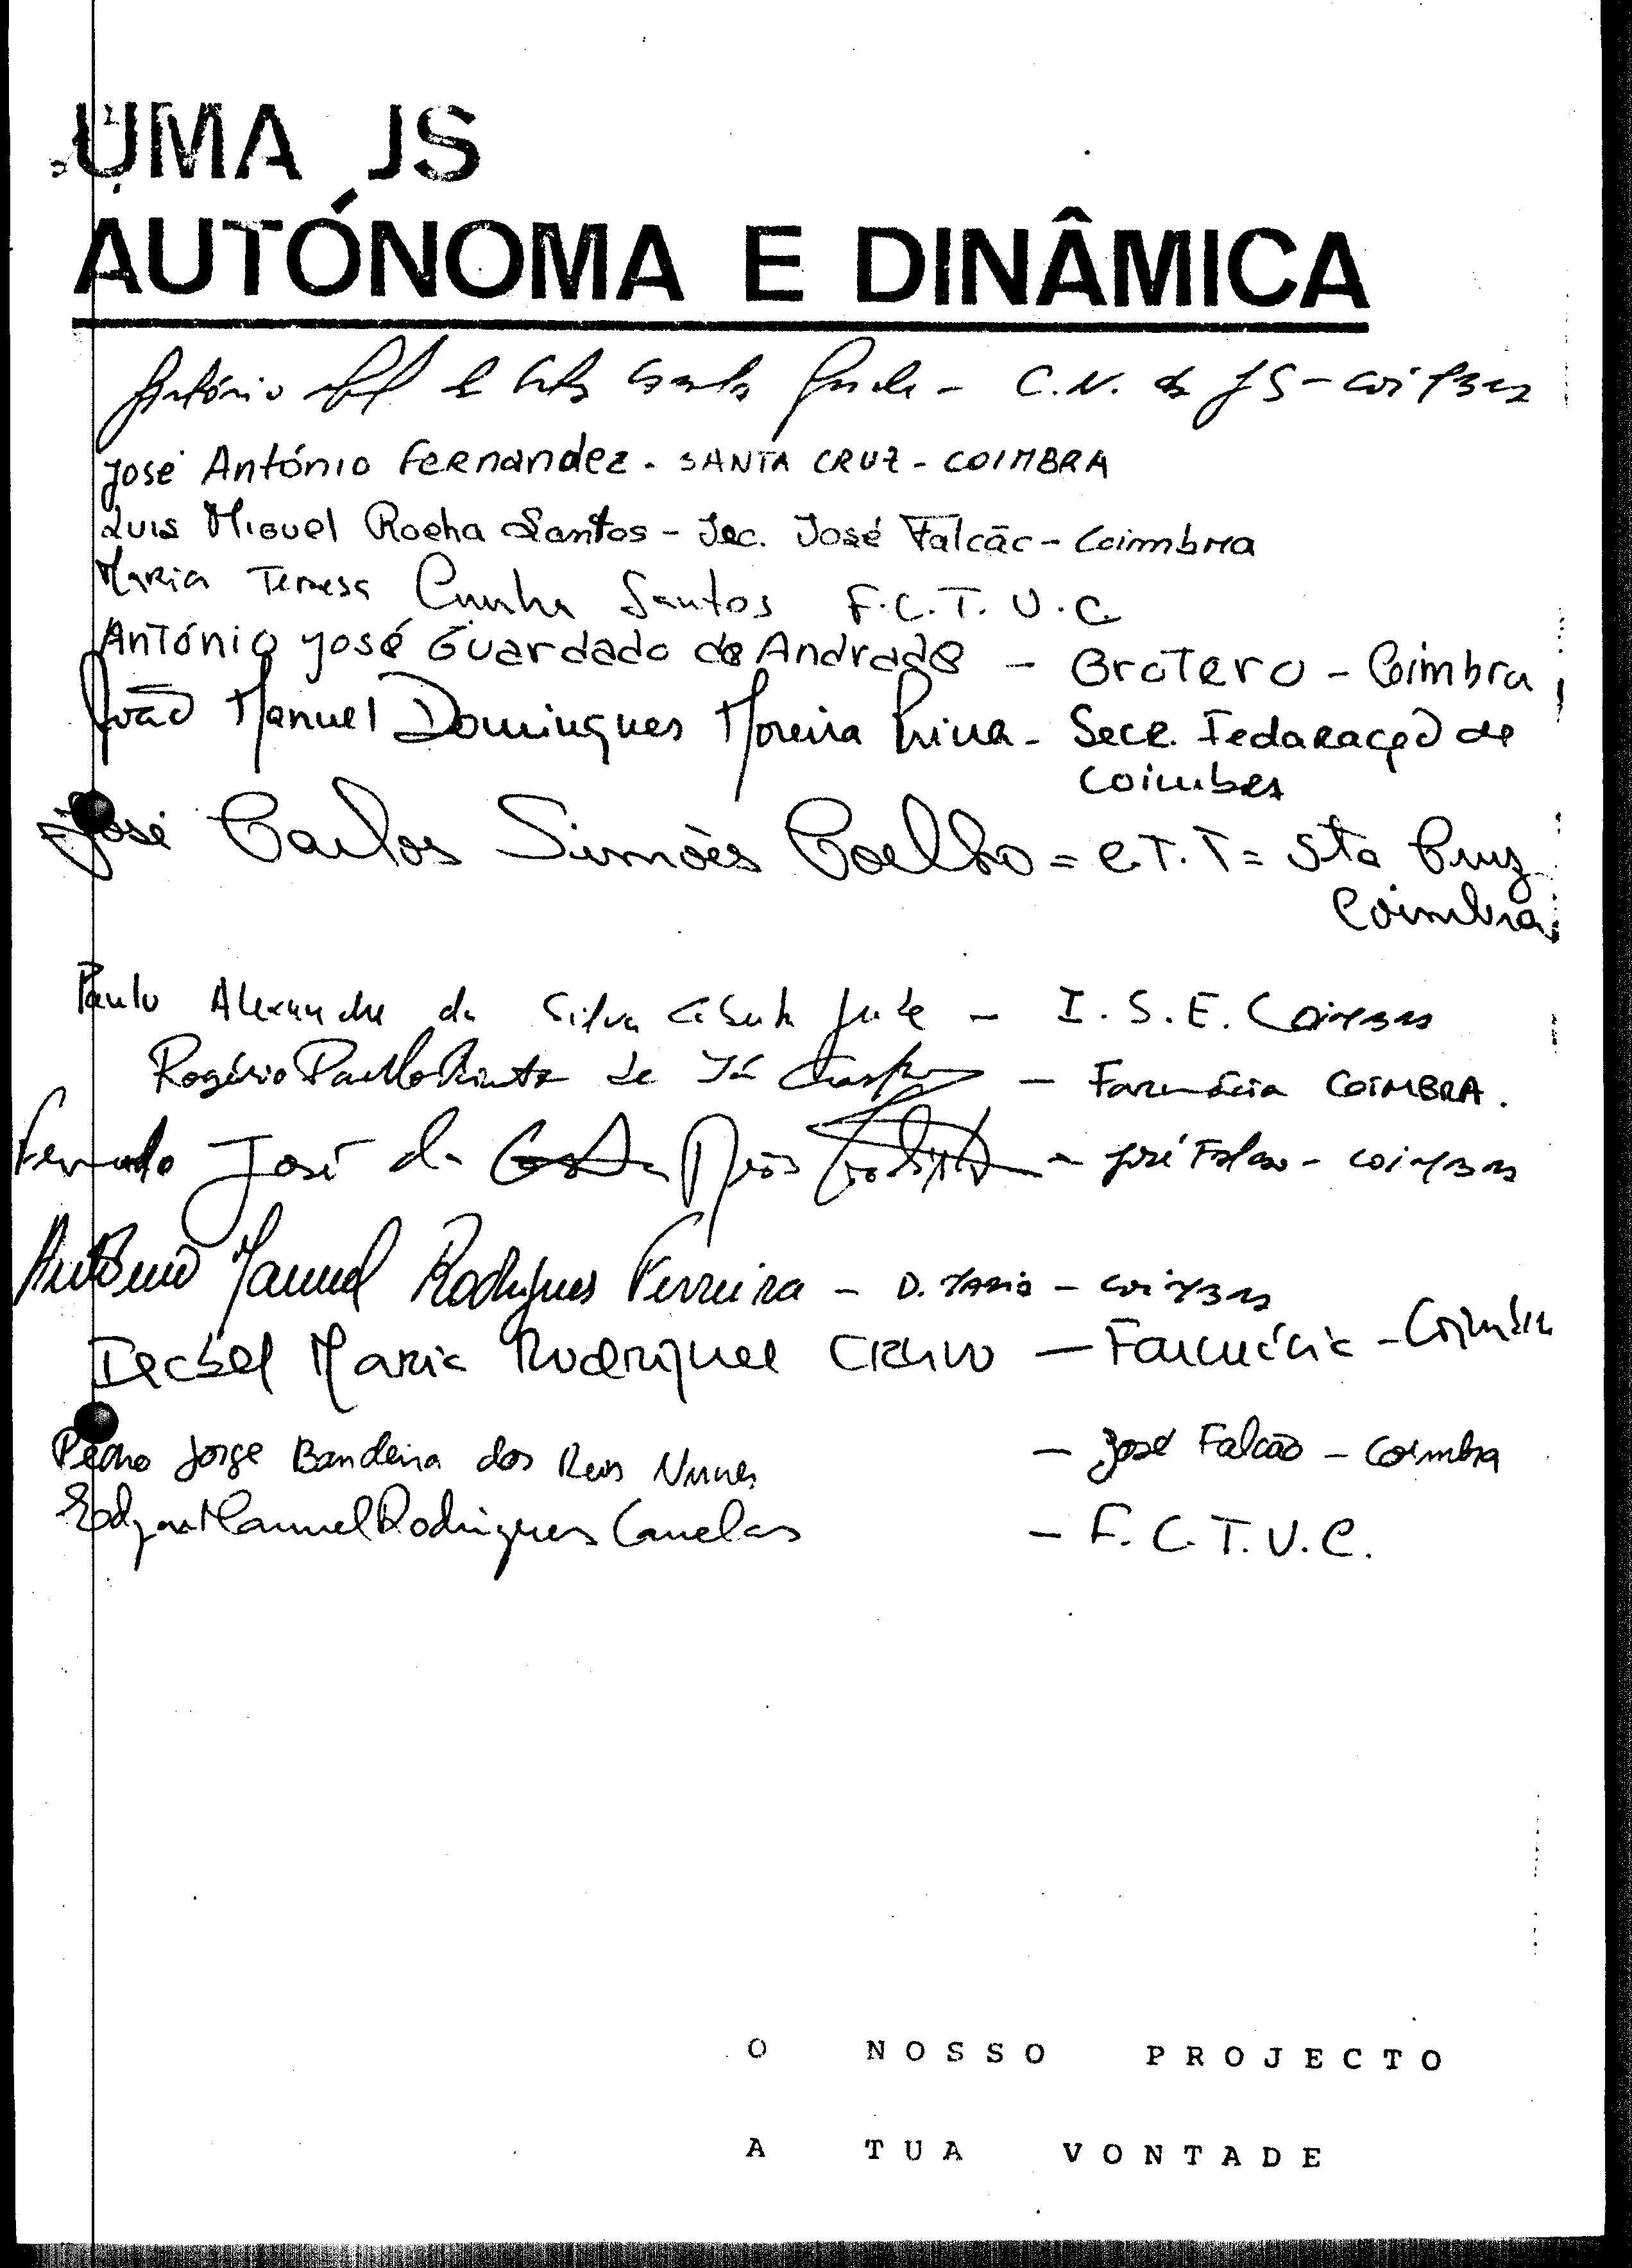 UMA JS
AUTÓNOMA E DINÂMICA
António - C.N. da JS - Coimbra
José António Fernandez - SANTA CRUZ - COIMBRA
Luis Miguel Rocha Santos - Sec. José Falcão - Coimbra
Maria Teresa Cunha Santos F.C.T.U.C.
António José Guardado de Andrade - Brotero - Coimbra
João Manuel Domingues Moreira - Secr. Fedaração de
Coimbra
José Carlos Simões Coelho = C.T.T = Sta Cruz
Coimbra
Paulo Alexandre da Silva - I.S.E. Coimbra
Rogério Paulo de Sá - Farmácia COIMBRA.
Fernando José da Costa - José Falcão - Coimbra
António Manuel Rodrigues Ferreira - D. Maria - Coimbra
Isabel Maria Rodrigues - Farmácia - Coimbra
Pedro Jorge Bandeira dos Reis Nunes - José Falcão - Coimbra
Edgar Manuel Rodrigues Canelas - F.C.T.U.C.
O NOSSO PROJECTO
A TUA VONTADE